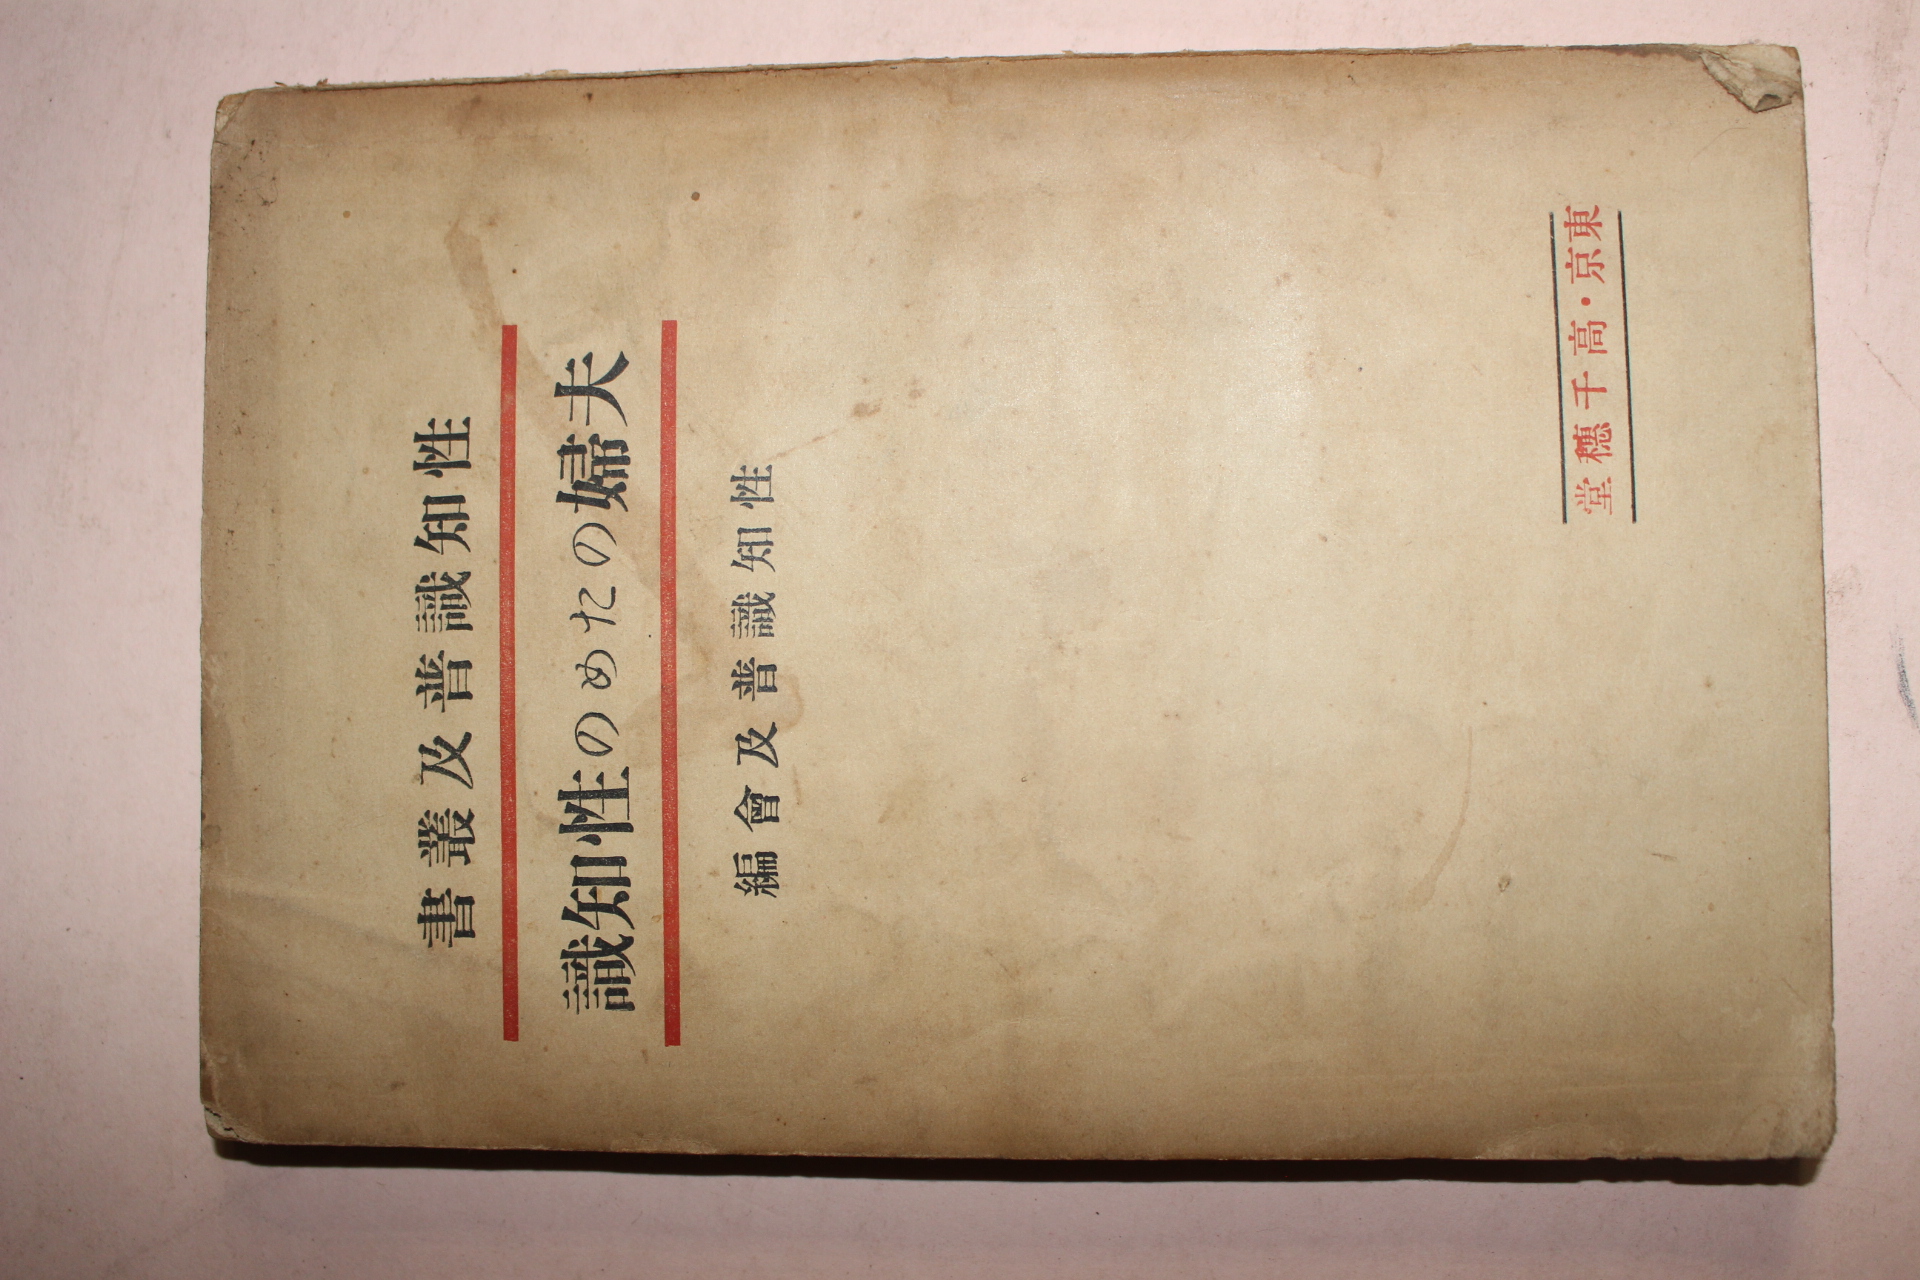 性知識普及叢書
夫婦のための性知識
性知識普及會編
東京・高千穗堂